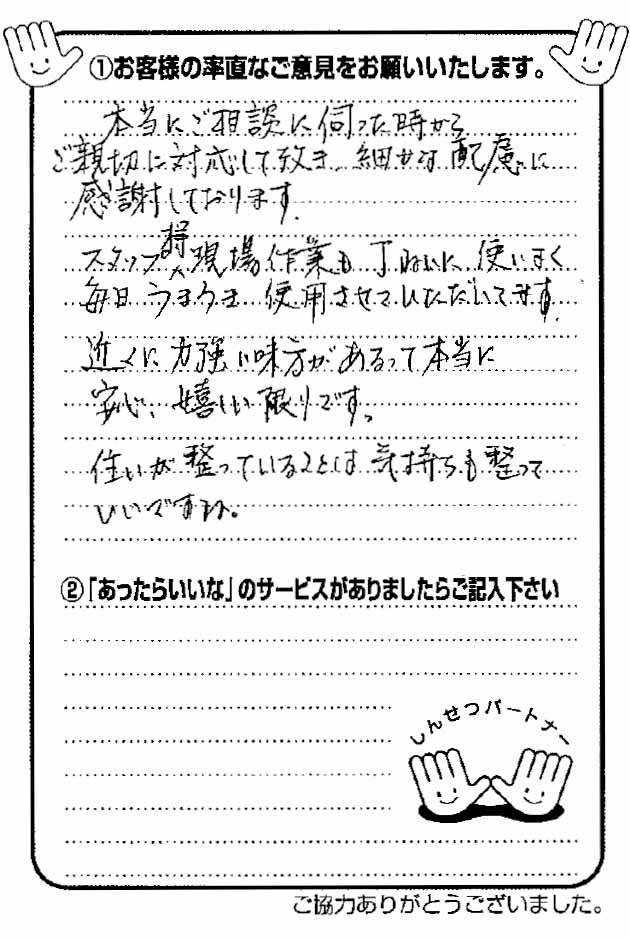 ①お客様の率直なご意見をお願いいたします。
本当にご相談に伺った時から
ご親切に対応して致き、細かな配慮に
感謝しております。
スタッフ様現場作業も丁ねいに使いまく
毎日うまうま使用させていただいてます。
近くに力強い味方があるって本当に
安心、嬉しい限りです。
住いが整っていることは気持ちも整って
いいですね。
②「あったらいいな」のサービスがありましたらご記入下さい
しんせつパートナー
ご協力ありがとうございました。